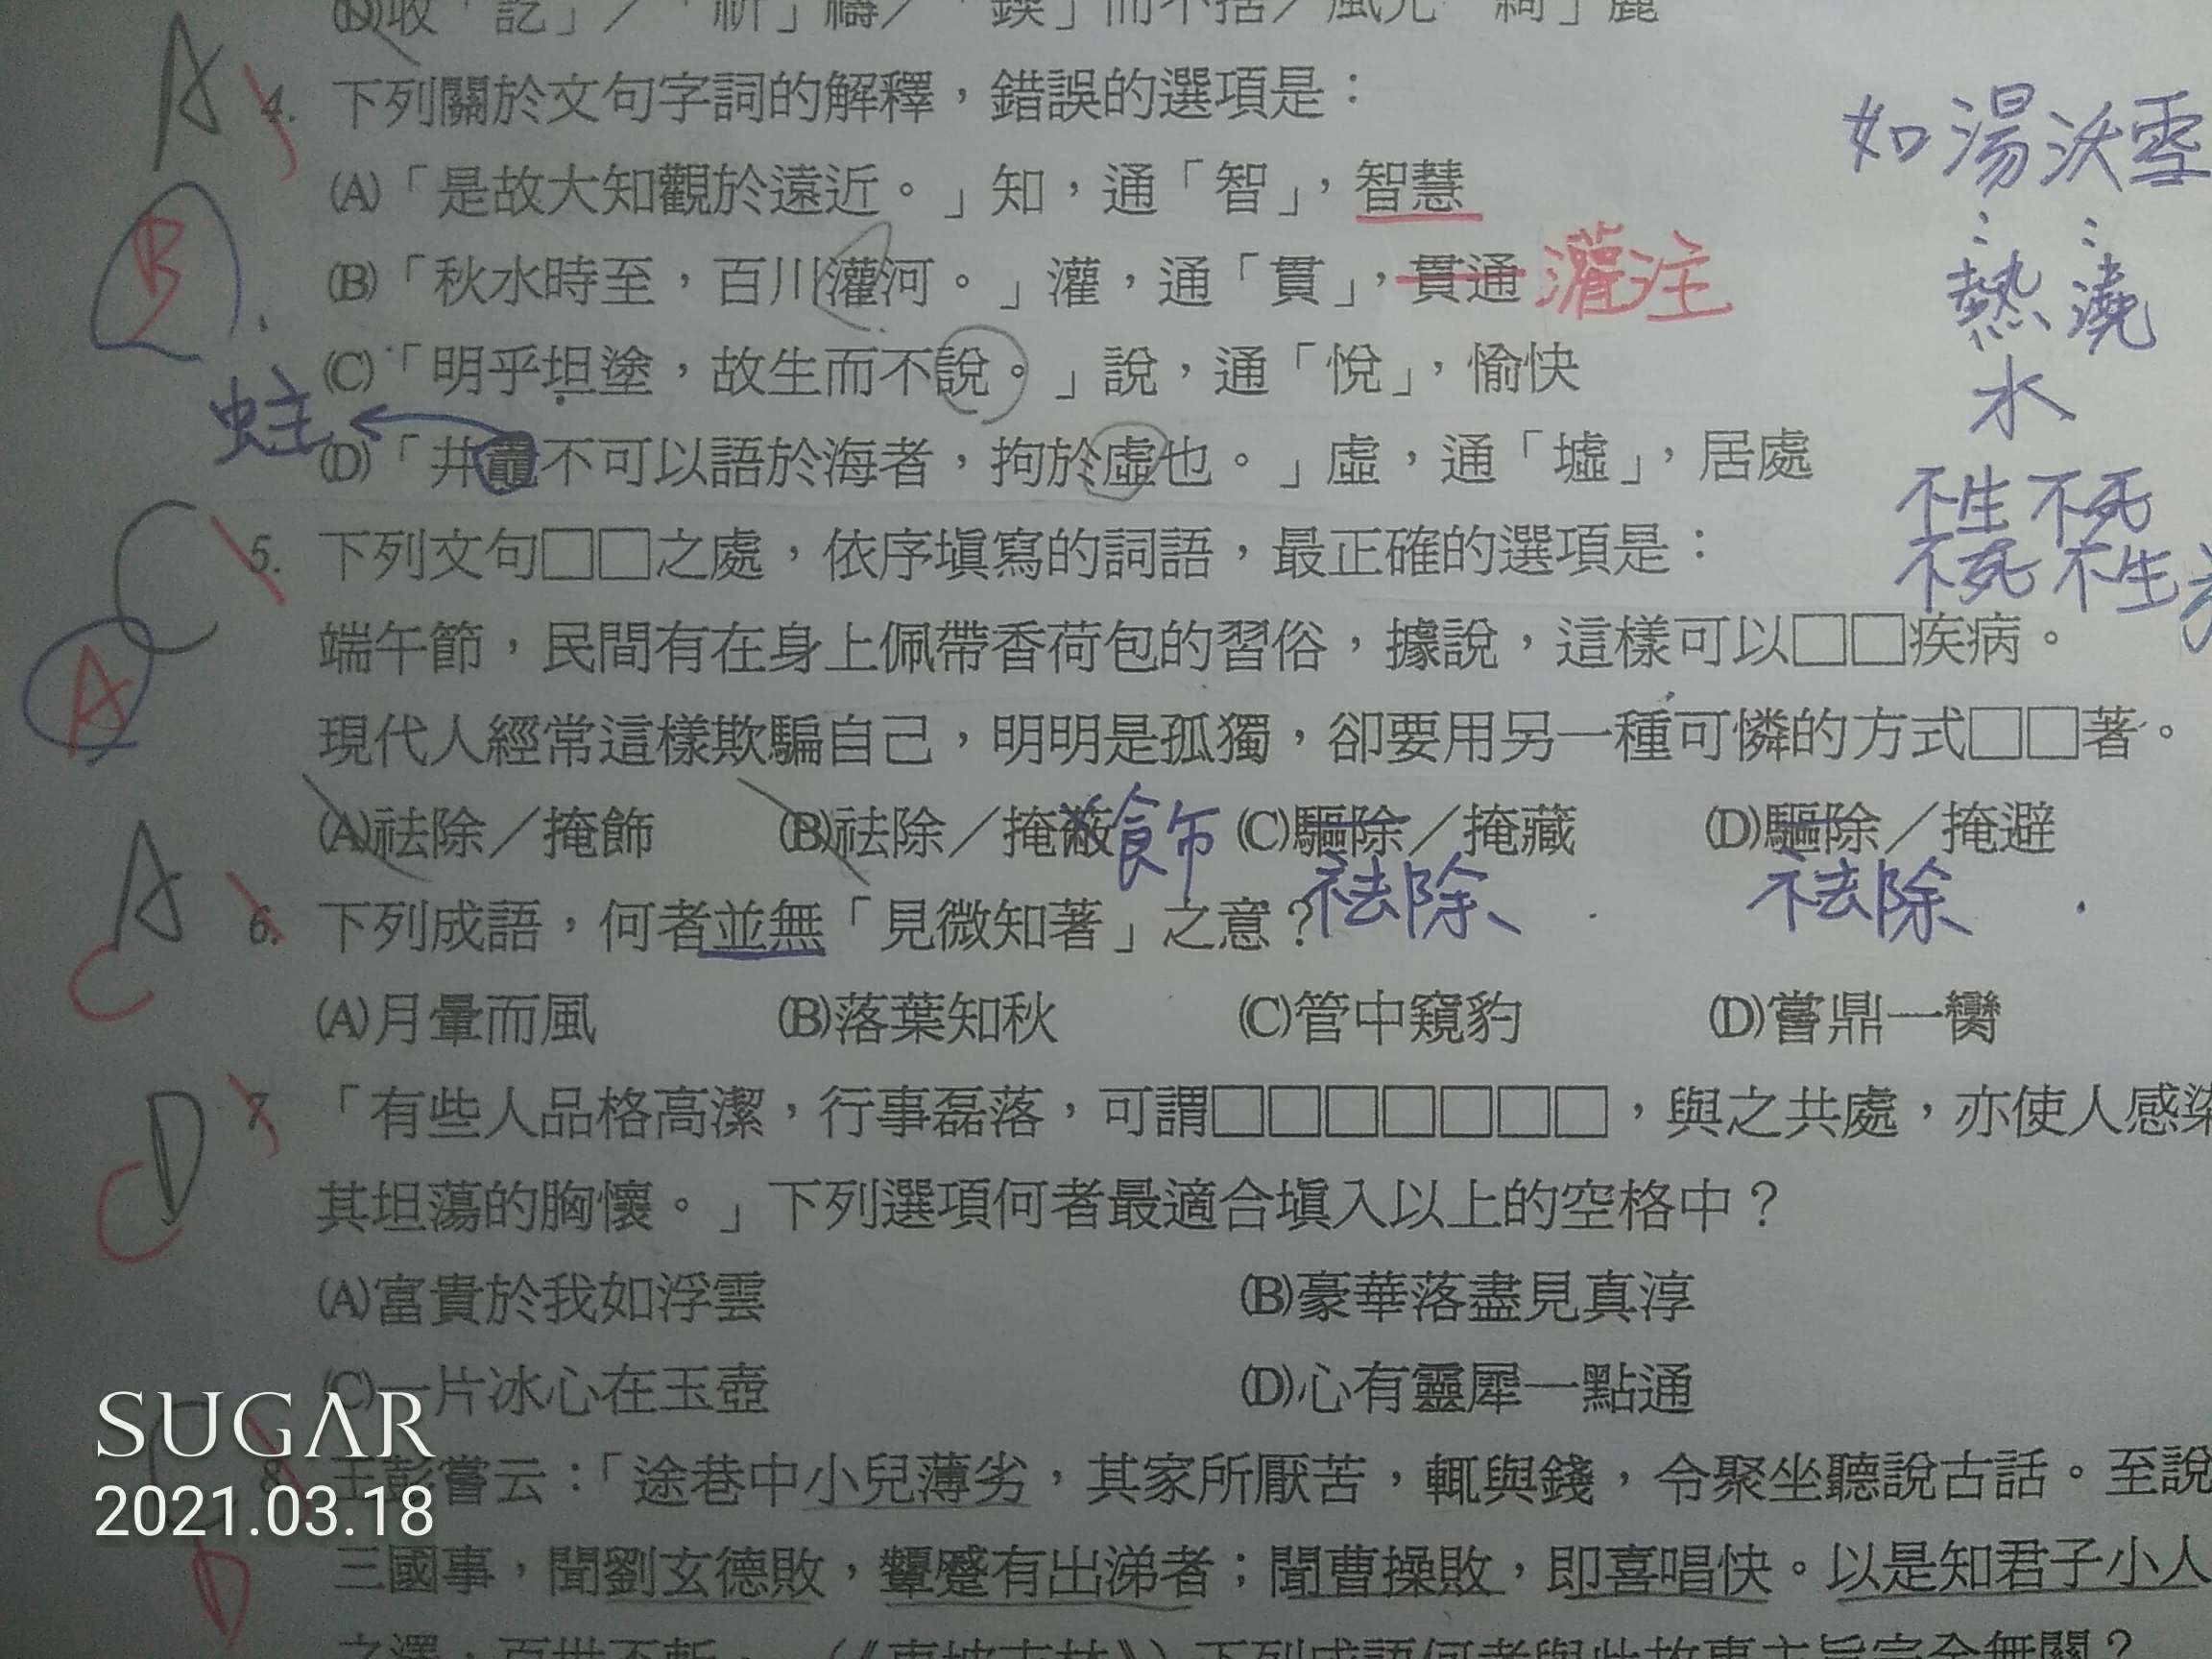 (D)收「訖」／「祈」禱／「鍥」而不捨／風光「綺」麗
A
4. 下列關於文句字詞的解釋，錯誤的選項是：
如湯沃雪
(A)「是故大知觀於遠近。」知，通「智」，智慧
B
(B)「秋水時至，百川灌河。」灌，通「貫」，貫通 灌注
熱 澆
水
(C)「明乎坦塗，故生而不說。」說，通「悅」，愉快
蛙
(D)「井鼃不可以語於海者，拘於虛也。」虛，通「墟」，居處
不生不死
不死不生
C
5. 下列文句□□之處，依序填寫的詞語，最正確的選項是：
端午節，民間有在身上佩帶香荷包的習俗，據說，這樣可以□□疾病。
A
現代人經常這樣欺騙自己，明明是孤獨，卻要用另一種可憐的方式□□著。
(A)祛除／掩飾 (B)祛除／掩蔽 飾 (C)驅除／掩藏 (D)驅除／掩避
祛除 祛除
A
6. 下列成語，何者並無「見微知著」之意？
C
(A)月暈而風 (B)落葉知秋 (C)管中窺豹 (D)嘗鼎一臠
D
7. 「有些人品格高潔，行事磊落，可謂□□□□□□□，與之共處，亦使人感染
C
其坦蕩的胸懷。」下列選項何者最適合填入以上的空格中？
(A)富貴於我如浮雲 (B)豪華落盡見真淳
(C)一片冰心在玉壺 (D)心有靈犀一點通
SUGAR
2021.03.18
C
8. 王彭嘗云：「途巷中小兒薄劣，其家所厭苦，輒與錢，令聚坐聽說古話。至說
D
三國事，聞劉玄德敗，顰蹙有出涕者；聞曹操敗，即喜唱快。以是知君子小人
之澤，百世不斬。」（《東坡志林》）下列成語何者與此故事主旨完全無關？